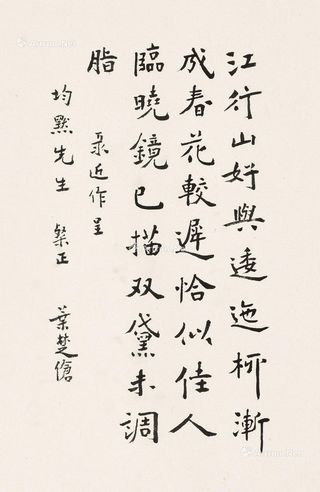 江行山好與逶迤柳漸
成春花較遲恰似佳人
臨曉鏡已描双黛未調
脂
录近作呈
均默先生 粲正 葉楚傖